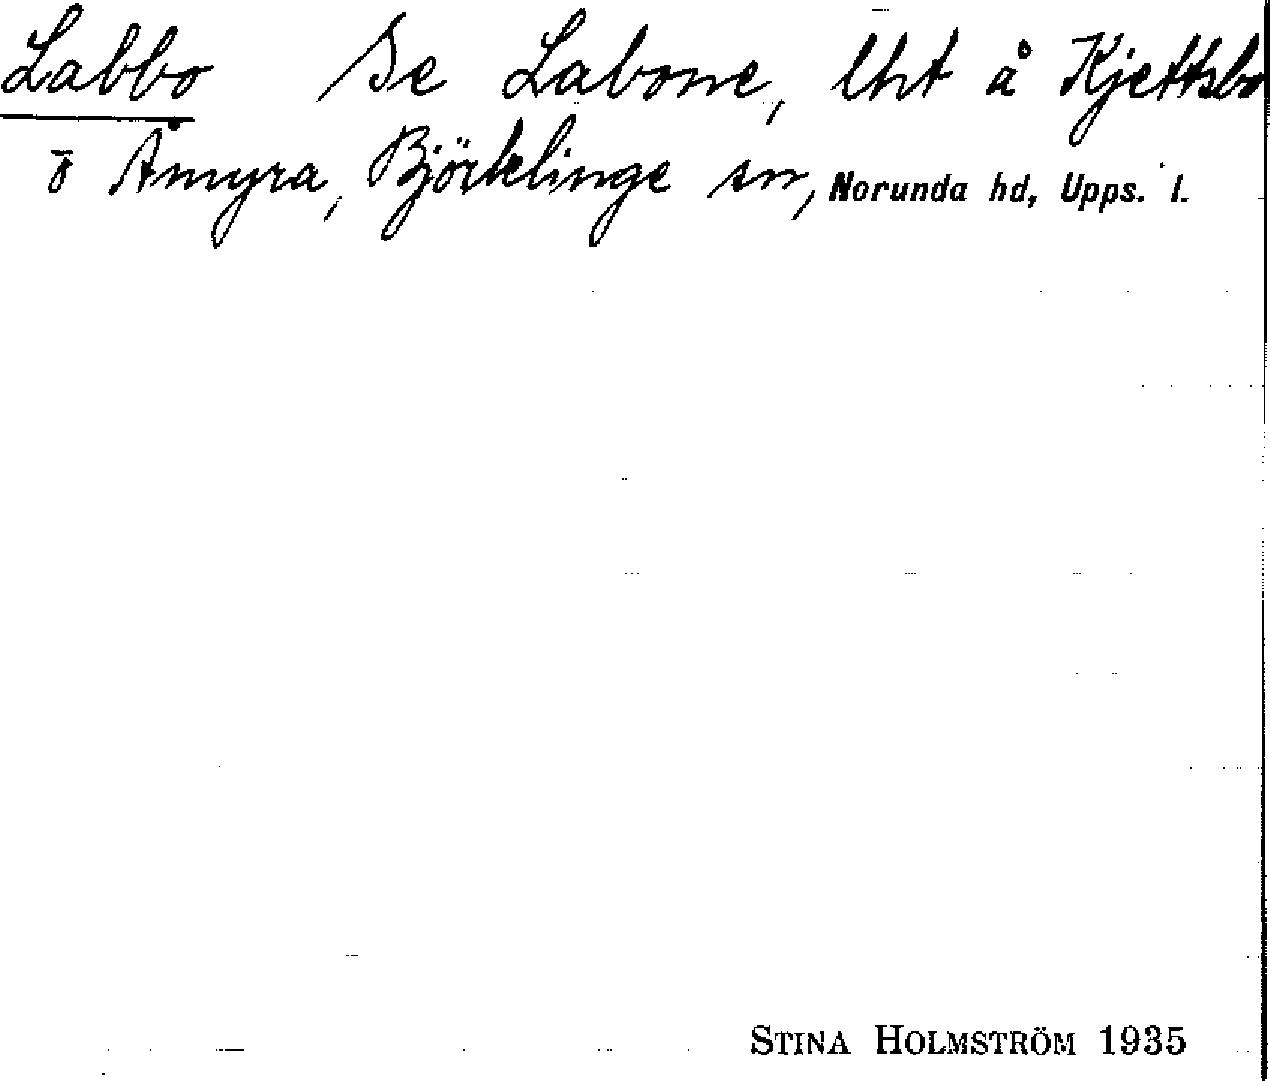 Labbo Se Labone, lht å Kjettsbo
o Åmyra, Björklinge sn, Norunda hd, Upps. l.
STINA HOLMSTRÖM 1935